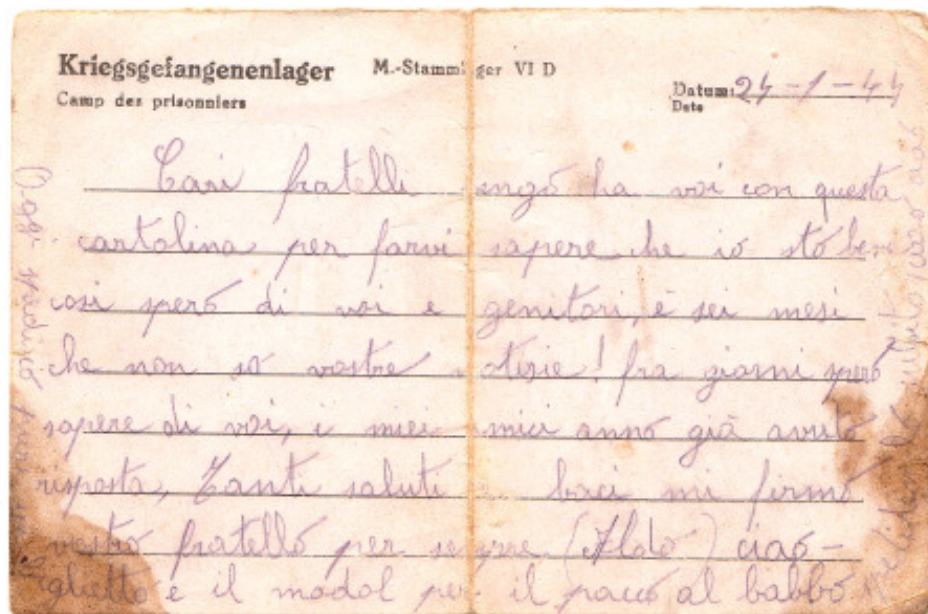 Kriegsgefangenenlager M.-Stammlager VI D
Camp des prisonniers
Datum: 24-1-44
Date
Cari fratelli engo ha voi con questa
cartolina per farvi sapere che io sto bene
cosi spero di voi e genitori, è sei mesi
che non so vostre notizie! fra giorni spero
sapere di voi, i miei amici anno già avuto
risposta, Tanti saluti baci mi firmo
vostro fratello per sempre (Aldo) ciao-
glietto e il modol per il pacco al babbo
Oggi spedisco
subito